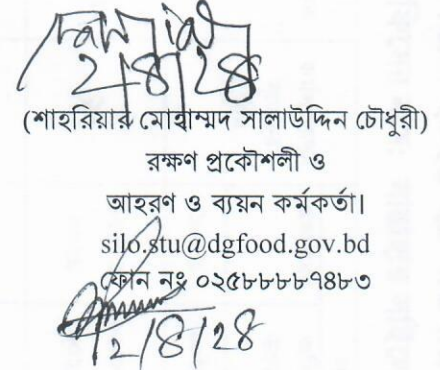 ২/৪/২৪
(শাহরিয়ার মোহাম্মদ সালাউদ্দিন চৌধুরী)
রক্ষণ প্রকৌশলী ও
আহরণ ও ব্যয়ন কর্মকর্তা।
silo.stu@dgfood.gov.bd
ফোন নং ০২৫৮৮৮৮৭৪৮৩
২/৪/২৪